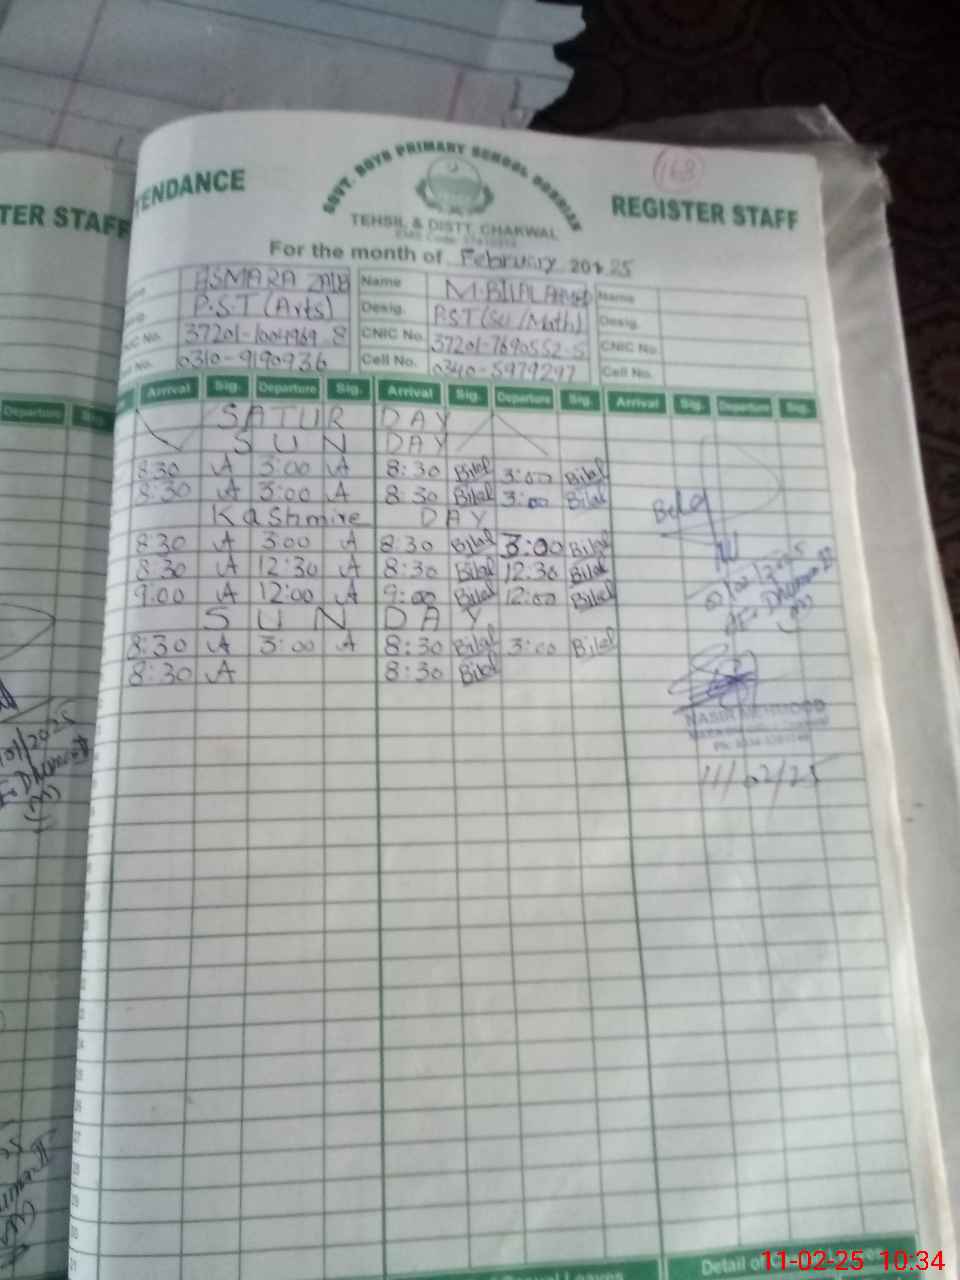 TENDANCE
GOVT. BOYS PRIMARY SCHOOL
REGISTER STAFF
168
TER STAFF
TEHSIL & DISTT. CHAKWAL
For the month of February 2025
ASMARA Name M. BILAL Name
P.S.T (Arts) Desig. P.S.T (Sci/Math) Desig.
CNIC No. CNIC No. 37201-7690552-5 CNIC No.
Cell No. 0310-9190936 Cell No. 0340-5979297 Cell No.
Departure Arrival Sig. Departure Sig. Arrival Sig. Departure Sig. Arrival Sig. Departure Sig.
SATUR DAY
SUN DAY
8:30 A 3:00 A 8:30 Bilal 3:00 Bilal
8:30 A 3:00 A 8:30 Bilal 3:00 Bilal
Kashmire DAY
8:30 A 3:00 A 8:30 Bilal 3:00 Bilal
8:30 A 12:30 A 8:30 Bilal 12:30 Bilal
9:00 A 12:00 A 9:00 Bilal 12:00 Bilal
SUN DAY
8:30 A 3:00 A 8:30 Bilal 3:00 Bilal
8:30 A 8:30 Bilal
NASIR MEHMOOD
11/02/25
Detail of
11-02-25 10:34